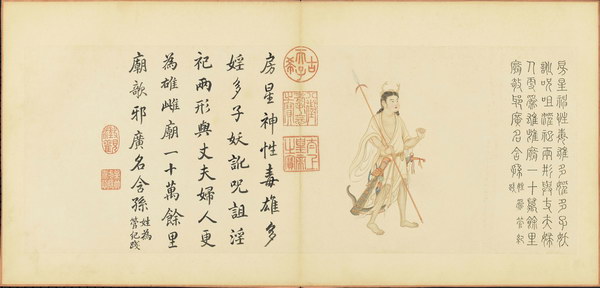 房星神性毒雄多婬多子妖
訛呪咀淫祀兩形與丈夫婦
人更為雄雌廟一十萬餘里
廟歌邪廣名含孫
姓為管紀
踐
古希天子
太上皇帝之寶
房星神性毒雄多
婬多子妖訛呪詛淫
祀兩形與丈夫婦人更
為雄雌廟一十萬餘里
廟歌邪廣名含孫
姓為
管紀踐